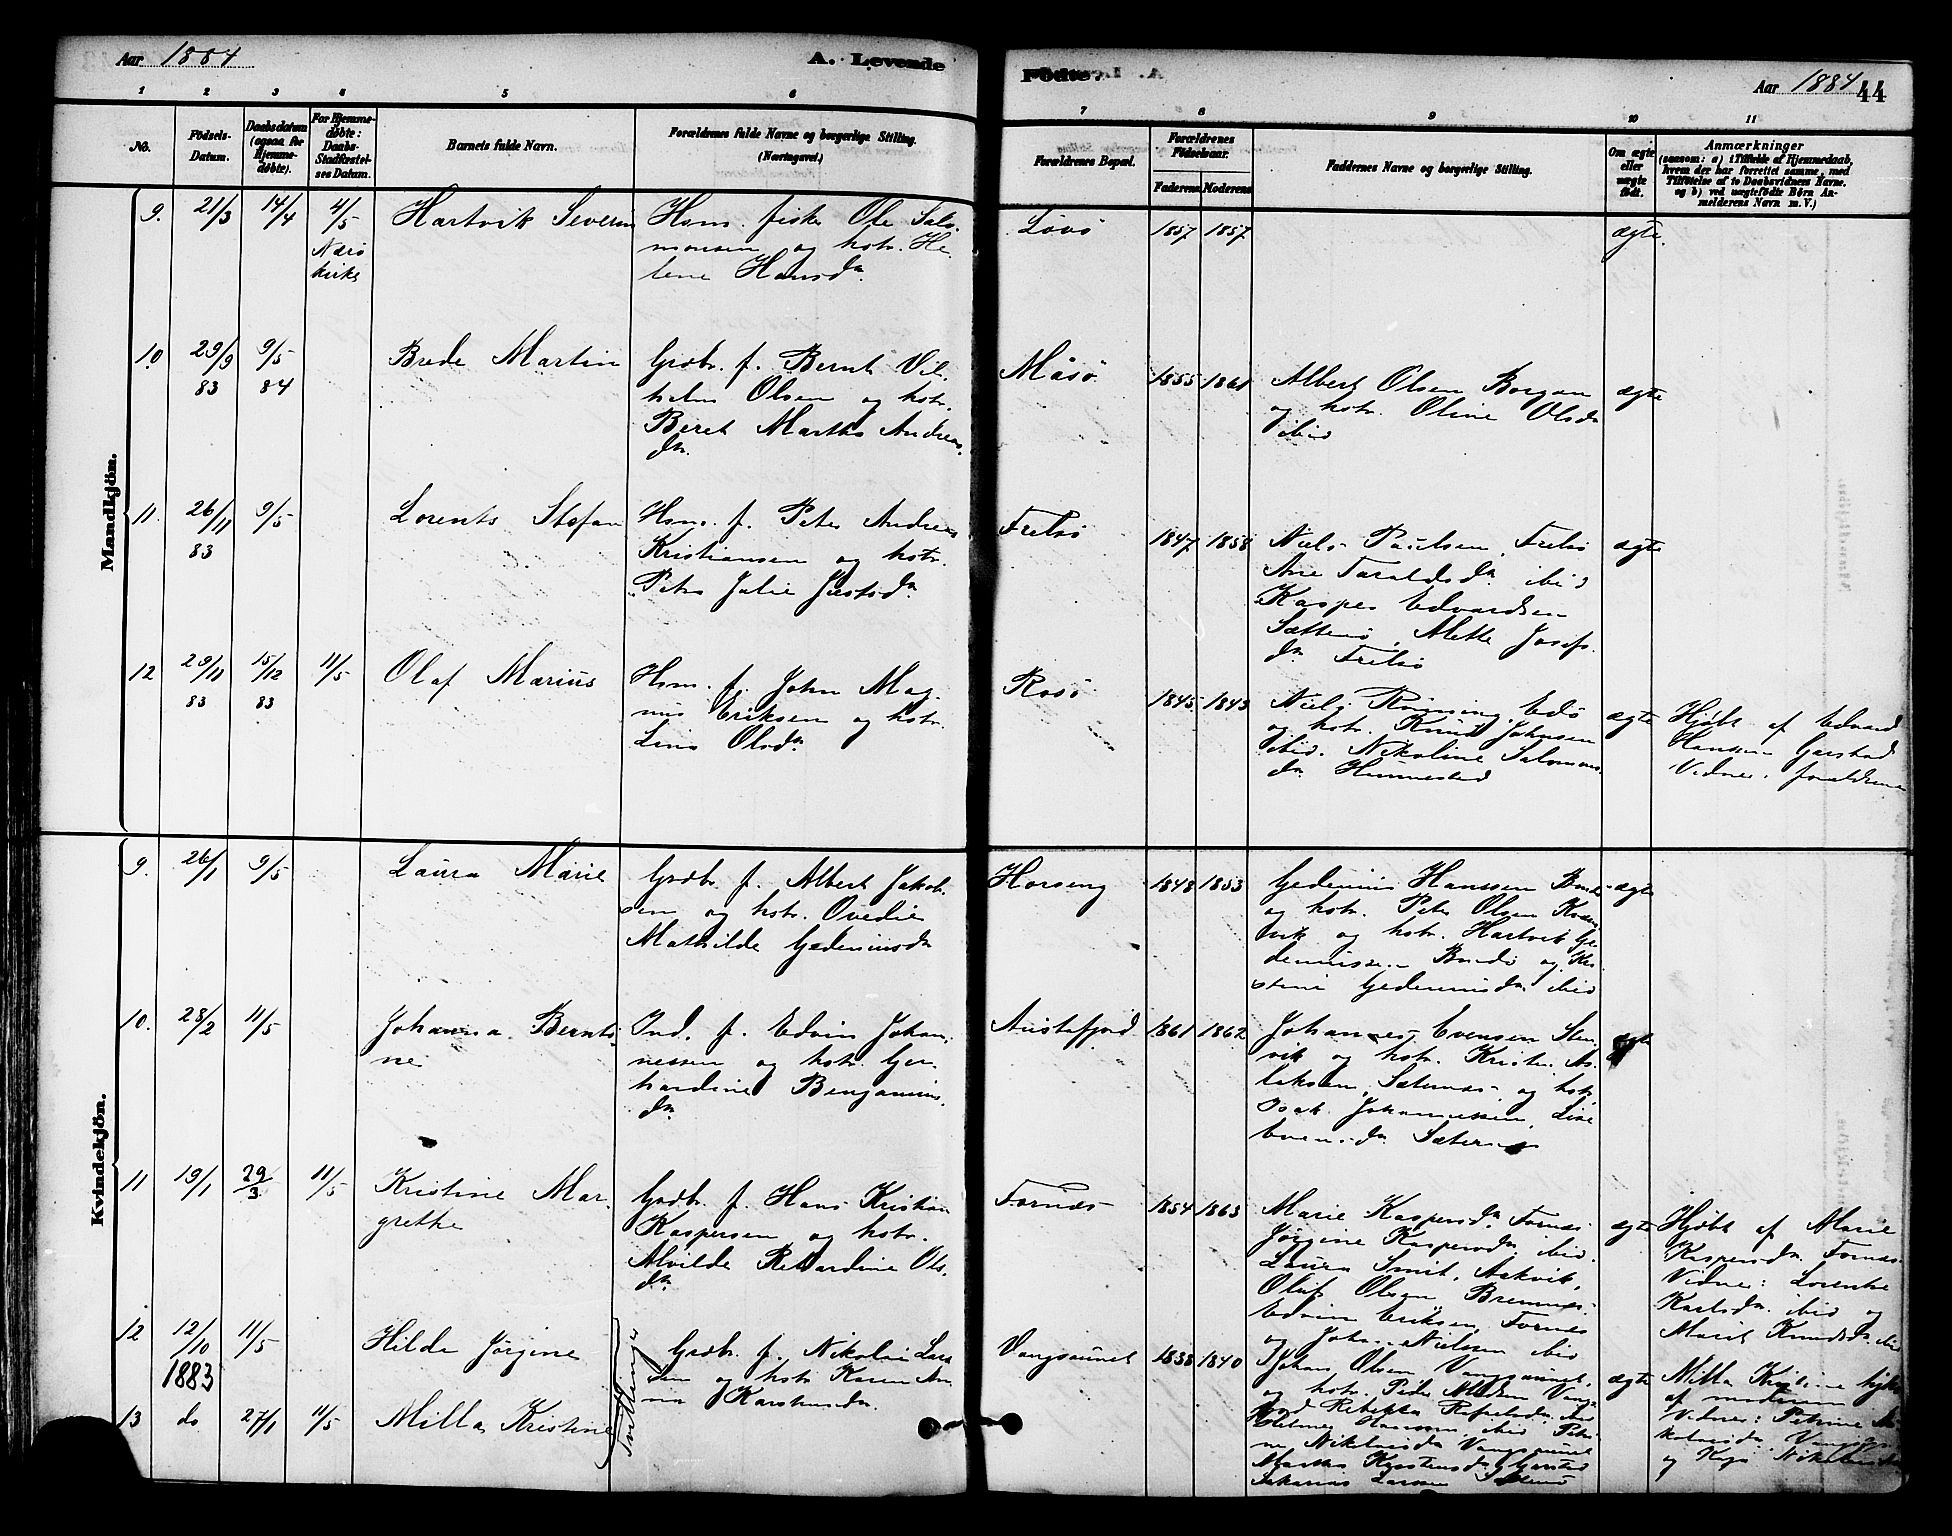 Aar 1884
A. Levende
Fødte.
Aar 1884
44
1 2 3 4 5 6 7 8 9 10 11
No.
Fødsels-
Datum.
Daabsdatum
(ogsaa for
Hjemme-
døbte).
For Hjemme-
døbte:
Daabs-
Stadfæstel-
ses Datum.
Barnets fulde Navn.
Forældrenes fulde Navne og borgerlige Stilling.
(Næringsvei.)
Forældrenes Bopæl.
Forældrenes
Fødselsaar.
Faderens Moderens
Faddernes Navne og borgerlige Stilling.
Om ægte
eller
uægte
født.
Anmærkninger
(saasom: a) i Tilfælde af Hjemmedaab,
hvem der har forrettet samme, med
Tilføielse af to Daabsvidners Navne,
og b) ved uægtefødte Børn An-
melderens Navn m. V.)
Mandkjøn.
9. 21/3 14/4 4/5
Nærø
kirke
Hartvik Severin
Hsm. fisker Ole Salo-
monsen og hstr. He-
lene Hansdr.
Løvø
1857 1857
ægte.
10 29/9 9/5
83 84
Brede Martin
Grdbr. f. Bernt Vil-
helm Olsen og hstr.
Beret Martha Andreas-
dr.
Måsø
1855 1861
Albert Olsen Borgan
og hstr. Oline Olsdr
ibid
ægte
11. 26/11 9/5
83
Lorents Stefan
Hsm. f. Peter Andreas
Kristiansen og hstr.
Petra Julie Justsdr.
Frelsø
1847 1858
Niels Paulsen, Frelsø
Ane Taraldsdr. ibid
Kasper Edvardsen
Sætterø, Mette Josefs-
dr. Frelsø
ægte
12 29/11 15/12 11/5
83 83
Olaf Marius
Hsm. f. John Mag-
nus Eriksen og hstr.
Lina Olsdr.
Rosø
1845 1843
Niels Rønning, Edø
og hstr. Knud Johnsen
ibid. Nikoline Salomons-
dr. Hummestad
ægte
Hjdbt. af Edvard
Hansen Garstad
Vidner: forældrene
Kvindekjøn.
9. 26/1 9/5
Laura Marie
Grdbr. f. Albert Jakob-
sen og hstr. Ovedie
Mathilde Gedeniusdr
Horseng
1848 1853
Gedenius Hanssen
og hstr. Peter Olsen
vik og hstr. Hartvik Ge-
deniussen og Kri-
stine Gedeniusdr. ibid
ægte
10. 28/2 11/5
Johanna Bernti-
ne
Ind. f. Edvin Johan-
nessen og hstr. Ger-
hardine Benjamins-
dr.
Austafjord
1861 1862
Johannes Evensen Sten-
vik og hstr. Krist. As-
laksen, Sæternes og hstr
Isak Johannessen, Lise
Evensdr. Sæternes
ægte
11 19/1 29/3 11/5
Kristine Mar-
grethe
Grdbr. f. Hans Kristian
Kaspersen og hstr.
Alvilde Rikardine Ols-
dr.
Fornæs
1854 1863
Marie Kaspersdr. Fornæs
Jørgine Kaspersdr. ibid
Laura Smit, Aakvik,
Oluf Olsen Bremnes
Edvin Eriksen, Fornes
og Johan Nielsen ibid
ægte
Hjdbt af Marie
Kaspersdr. Fornæs
Vidner: Lorentse
Karlsdr. ibid og
Marit Knudsdr. ibid
12 12/10 11/5
1883
Hilda Jørgine
Tvillinger
Grdbr. f. Nikolai Lars-
sen og hstr Karen An-
na Karstensdr.
Vangsaunet
1838 1840
Johan Olsen Vangsaunet,
og hstr. Peder Madsen Vangs-
Rebekka Rafaelsdr. ibid
Hansen, ibid Petri-
ne Nikolaisdr Vangsaunet
Martha Karstensdr, Garstad
Sakarias Larssen
ægte
Milla Kristine hjdbt
af moderen
Vidner: Petrine Ni-
kolaisdr. Vangsau
og Nikolaisdr
13 do 27/1 11/5
Milla Kristine